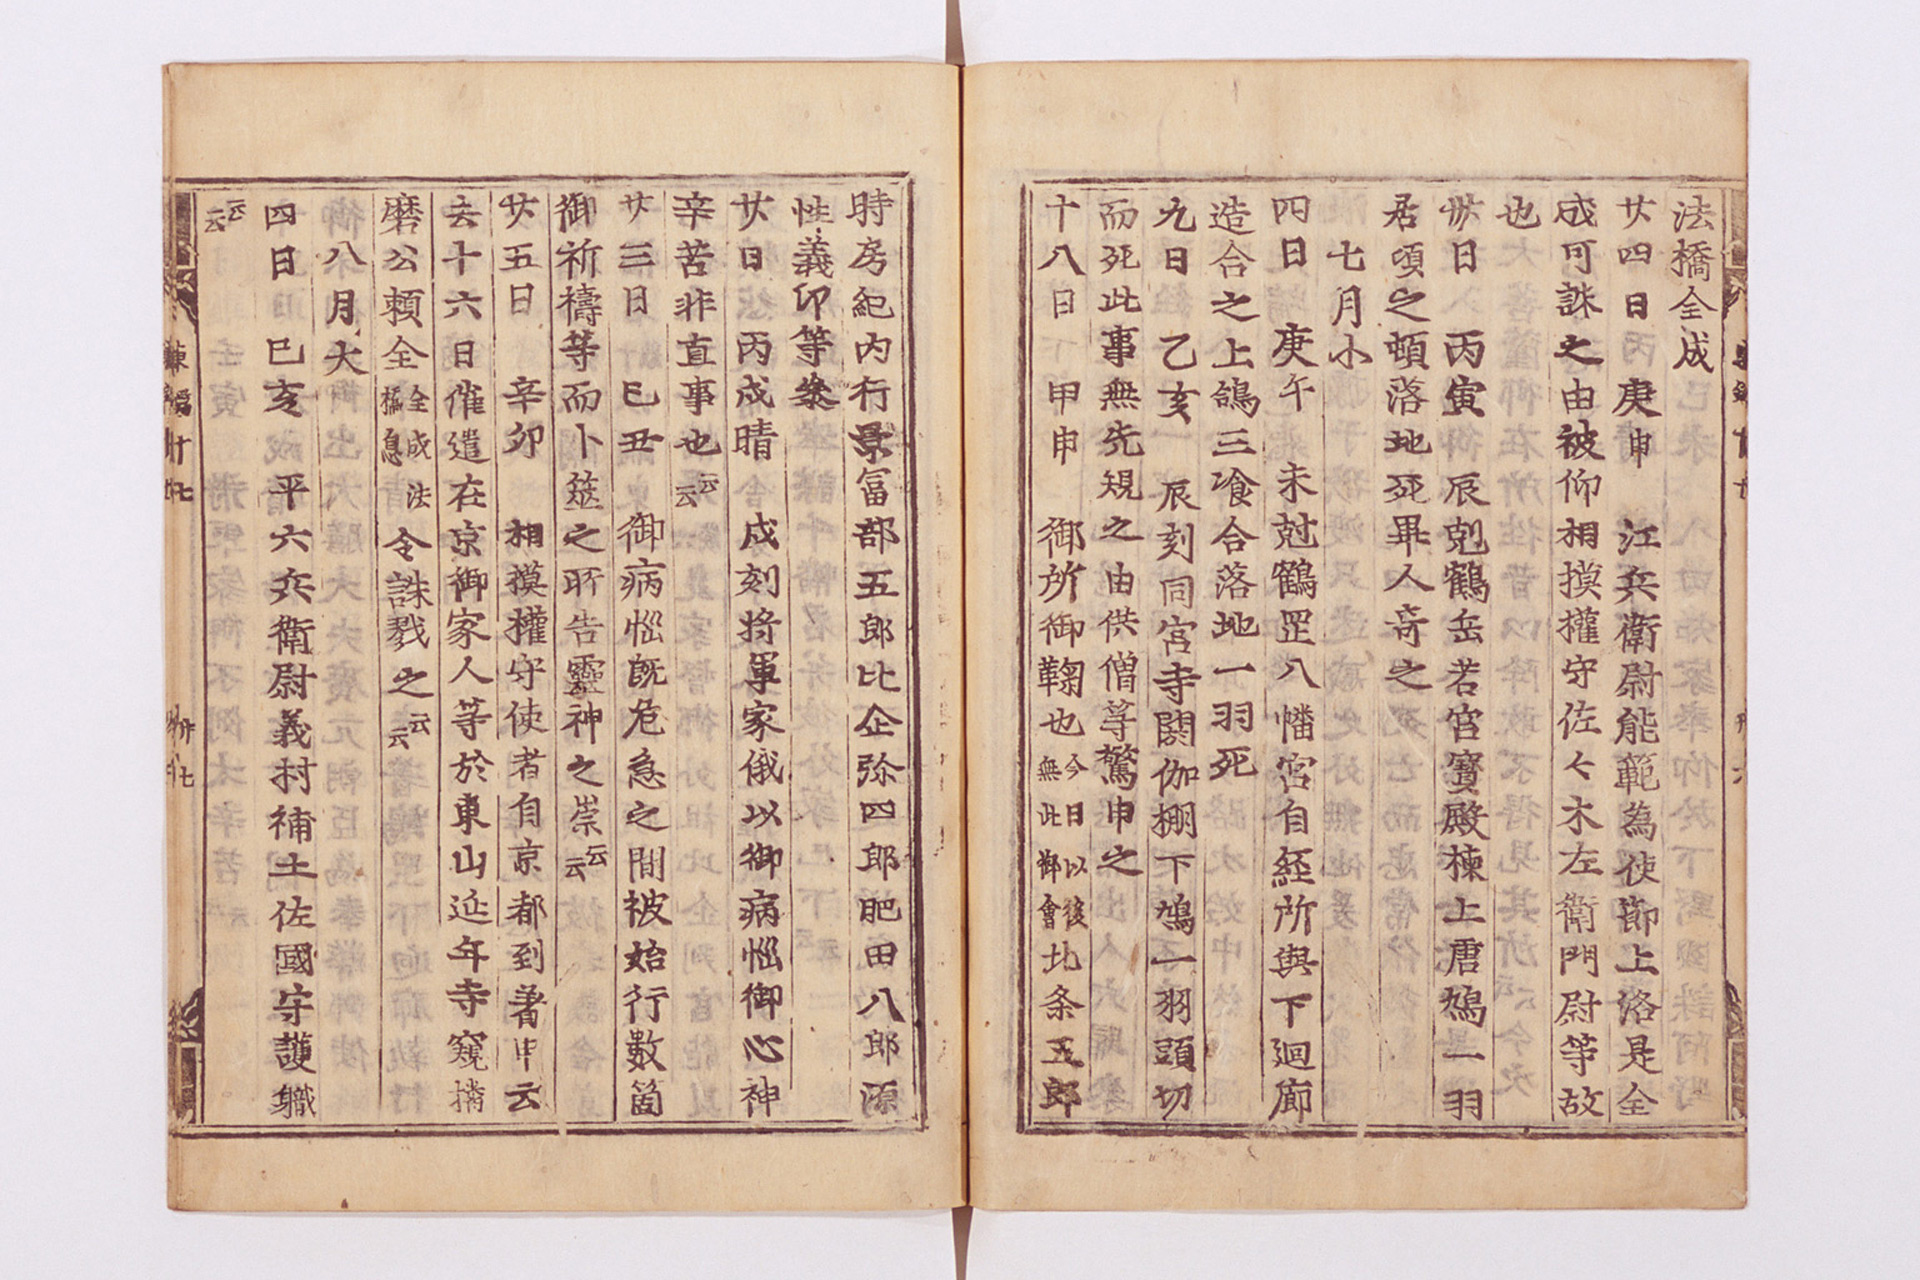 法橋全成
廿四日庚申 江兵衛尉能範為使節上洛是全
成可誅之由被仰相摸權守佐々木左衛門尉等故
也
卅日 丙寅 辰剋鶴岳若宮寶殿棟上唐鳩一羽
居頃之頓落地死畢人奇之
七月小
四日 庚午 未剋鶴岡八幡宮自経所與下廻廊
造合之上鴿三喰合落地一羽死
九日 乙亥 辰刻同宮寺閼伽棚下鳩一羽頭切
而死此事無先規之由供僧等驚申之
十八日 甲申 御所御鞠也今日以後無此御會北条五郎
時房紀内行景冨部五郎比企弥四郎肥田八郎源
性義印等参
廿日 丙戌晴 戌刻将軍家俄以御病悩御心神
辛苦非直事也云云
廿三日 巳丑 御病悩既危急之間被始行數箇
御祈禱等而卜筮之所告靈神之祟云云
廿五日 辛卯 相摸權守使者自京都到著申云
去十六日催遣在京御家人等於東山延年寺窺播
磨公頼全全成法橋息令誅戮之云云
八月大
四日 巳亥 平六兵衛尉義村補土佐國守護職
云云